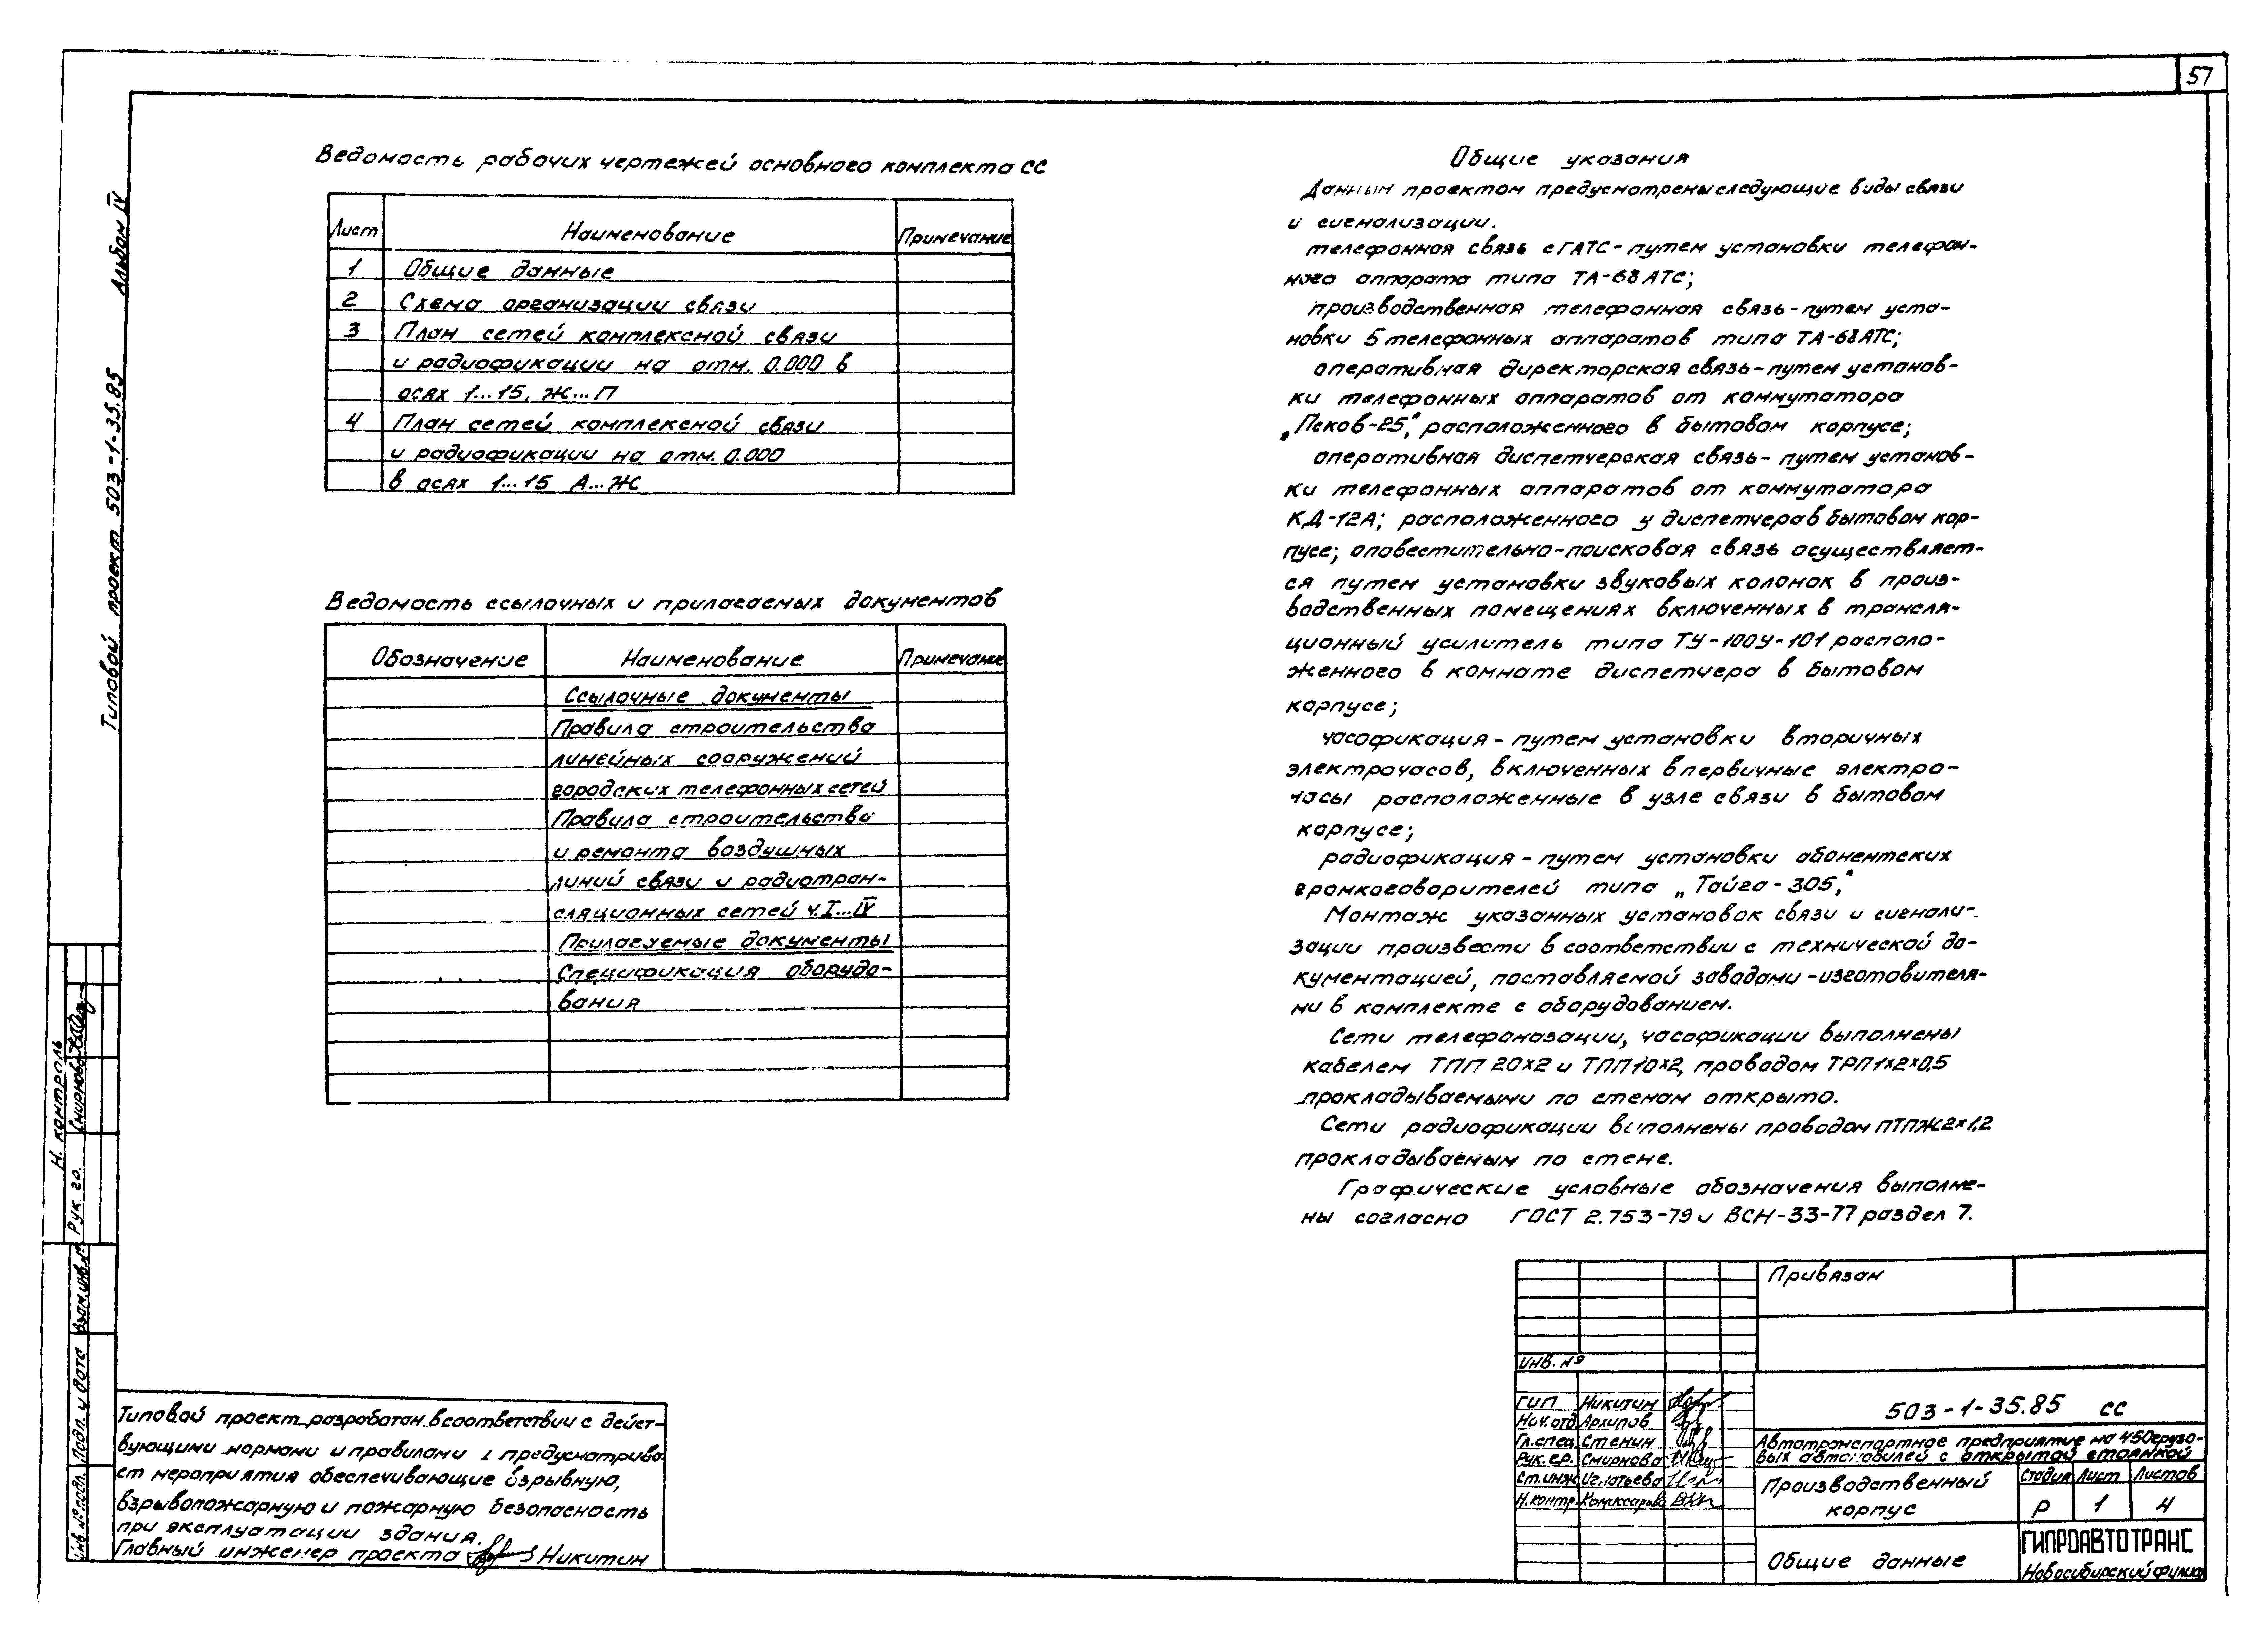 57
Типовой проект 503-1-35.85 Альбом IV
Ведомость рабочих чертежей основного комплекта СС
Лист Наименование Примечание
1 Общие данные
2 Схема организации связи
3 План сетей комплексной связи
и радиофикации на отм. 0.000 в
осях 1...15, Ж...П
4 План сетей комплексной связи
и радиофикации на отм. 0.000
в осях 1...15 А...Ж
Ведомость ссылочных и прилагаемых документов
Обозначение Наименование Примечание
Ссылочные документы
Правила строительства
линейных сооружений
городских телефонных сетей
Правила строительства
и ремонта воздушных
линий связи и радиотран-
сляционных сетей ч.I...IV
Прилагаемые документы
Спецификация оборудо-
вания
Общие указания
Данным проектом предусмотрены следующие виды связи
и сигнализации.
телефонная связь с ГАТС - путем установки телефон-
ного аппарата типа ТА-68 АТС;
производственная телефонная связь - путем уста-
новки 5 телефонных аппаратов типа ТА-68 АТС;
оперативная директорская связь - путем установ-
ки телефонных аппаратов от коммутатора
„Псков-25", расположенного в бытовом корпусе;
оперативная диспетчерская связь - путем установ-
ки телефонных аппаратов от коммутатора
КД-12А; расположенного у диспетчера в бытовом кор-
пусе; оповестительно-поисковая связь осуществляет-
ся путем установки звуковых колонок в произ-
водственных помещениях включенных в трансля-
ционный усилитель типа ТУ-100У-101 располо-
женного в комнате диспетчера в бытовом
корпусе;
часофикация - путем установки вторичных
электрочасов, включенных в первичные электро-
часы расположенные в узле связи в бытовом
корпусе;
радиофикация - путем установки абонентских
громкоговорителей типа „Тайга - 305,"
Монтаж указанных установок связи и сигнали-
зации произвести в соответствии с технической до-
кументацией, поставляемой заводами-изготовителя-
ми в комплекте с оборудованием.
Сети телефоназации, часофикации выполнены
кабелем ТПП 20×2 и ТПП10×2, проводом ТРП1×2×0,5
прокладываемыми по стенам открыто.
Сети радиофикации выполнены проводом ПТПЖ2×1,2
прокладываемым по стене.
Графические условные обозначения выполне-
ны согласно ГОСТ 2.753-79 и ВСН-33-77 раздел 7.
Н. контроль
Рук. гр. Смирнова
Взам.инв.№
Подп. и дата
Инв.№ подл.
Типовой проект разработан в соответствии с дейст-
вующими нормами и правилами и предусматрива-
ет мероприятия обеспечивающие взрывную,
взрывопожарную и пожарную безопасность
при эксплуатации здания.
Главный инженер проекта Никитин
Привязан
Инв. №
ГИП Никитин
Нач.отд Архипов
Гл.спец. Стенин
Рук.гр. Смирнова
Ст.инж Игнатьева
Н.контр. Комиссарова
503-1-35.85 СС
Автотранспортное предприятие на 450 грузо-
вых автомобилей с открытой стоянкой
Производственный
корпус
Стадия Лист Листов
Р 1 4
Общие данные
ГИПРОАВТОТРАНС
Новосибирский филиал